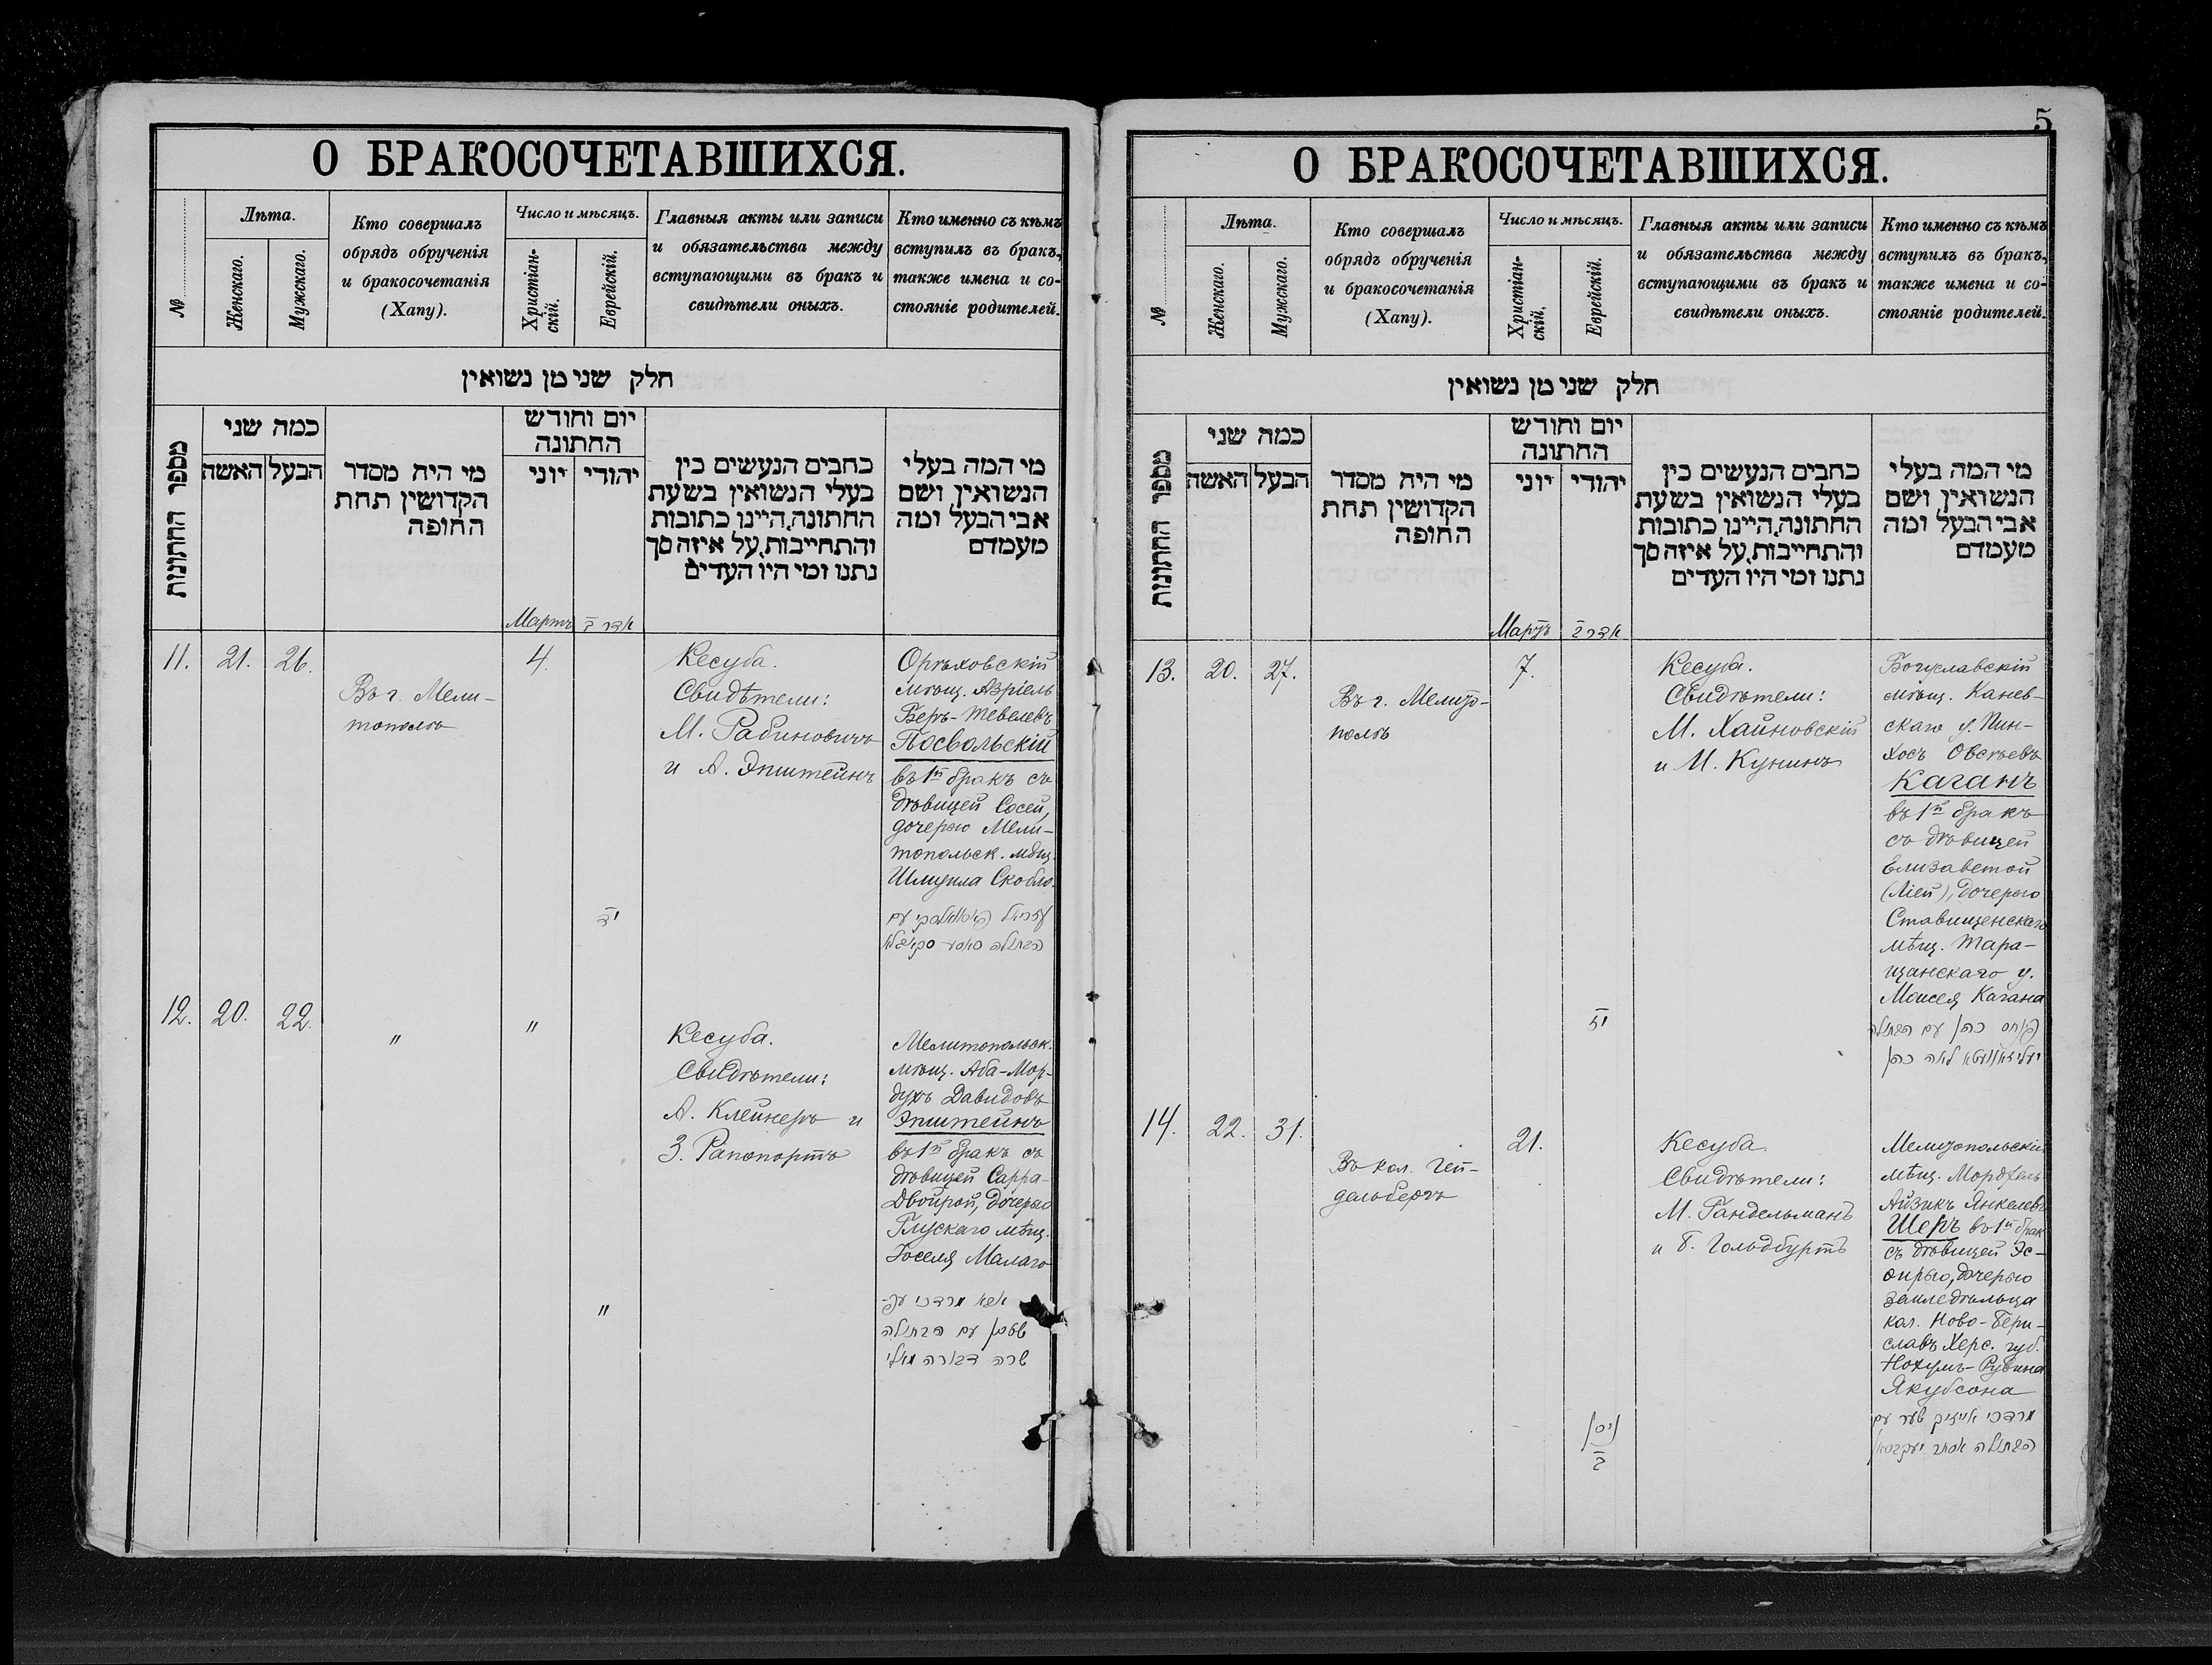 5
О БРАКОСОЧЕТАВШИХСЯ.
№
Лѣта.
Женскаго.
Мужскаго.
Кто совершалъ
обрядъ обрученія
и бракосочетанія
(Хапу).
Число и мѣсяцъ.
Христіан-
скій.
Еврейскій.
Главныя акты или записи
и обязательства между
вступающими въ бракъ и
свидѣтели оныхъ.
Кто именно съ кѣмъ
вступилъ въ бракъ,
также имена и со-
стояніе родителей.
חלק שני מן נשואין
מספר החתונות
כמה שני
האשה
הבעל
מי היה מסדר
הקדושין תחת
החופה
יום וחודש
החתונה
יוני
יהודי
כתבים הנעשים בין
בעלי הנשואין בשעת
החתונה, היינו כתובות
והתחייבות, על איזה סך
נתנו ומי היו העדים
מי המה בעלי
הנשואין, ושם
אבי הבעל ומה
מעמדם
Мартъ
אדר ב
11. 21. 26.
Въ г. Мели-
тополѣ
4.
יד
Кесуба.
Свидѣтели:
М. Рабиновичъ
и А. Эпштейнъ
Орѣховскій
мѣщ. Азріель
Беръ-Тевелевъ
Посвольскій
въ 1й бракъ съ
дѣвицей Сосей,
дочерью Мели-
топольск. мѣщ.
Шмуила Скобло.
עזריאל פאסוואלסקי עם
הבתולה סאסע סקאבלא
12. 20. 22.
"
"
"
Кесуба.
Свидѣтели:
А. Клейнеръ и
З. Рапопортъ
Мелитопольск.
мѣщ. Аба-Мор-
духъ Давидовъ
Эпштейнъ
въ 1й бракъ съ
дѣвицей Сарра-
Двойрой, дочерью
Глускаго мѣщ.
Іоселя Малаго
אבא מרדכי עפ-
שטיין עם הבתולה
שרה דבורה מאלי
О БРАКОСОЧЕТАВШИХСЯ.
№
Лѣта.
Женскаго.
Мужскаго.
Кто совершалъ
обрядъ обрученія
и бракосочетанія
(Хапу).
Число и мѣсяцъ.
Христіан-
скій.
Еврейскій.
Главныя акты или записи
и обязательства между
вступающими въ бракъ и
свидѣтели оныхъ.
Кто именно съ кѣмъ
вступилъ въ бракъ,
также имена и со-
стояніе родителей.
חלק שני מן נשואין
מספר החתונות
כמה שני
האשה
הבעל
מי היה מסדר
הקדושין תחת
החופה
יום וחודש
החתונה
יוני
יהודי
כתבים הנעשים בין
בעלי הנשואין בשעת
החתונה, היינו כתובות
והתחייבות, על איזה סך
נתנו ומי היו העדים
מי המה בעלי
הנשואין, ושם
אבי הבעל ומה
מעמדם
Мартъ
אדר ב
13. 20. 27.
Въ г. Мелито-
полѣ
7.
יז
Кесуба.
Свидѣтели:
М. Хайновскій
и М. Кунинъ
Богуславскій
мѣщ. Канев-
скаго у. Пин-
хосъ Овсѣевъ
Каганъ
въ 1й бракъ
съ дѣвицей
Елизаветой
(Ліей), дочерью
Ставищенскаго
мѣщ. Тара-
щанскаго у.
Моисея Кагана
פנחס כהן עם הבתולה
יעליזאוועטא לאה כהן
14. 22. 31.
Въ кол. Гей-
дельбергъ
21.
ניסן
ב
Кесуба
Свидѣтели:
М. Гандельманъ
и Б. Гольдбуртъ
Мелитопольскій
мѣщ. Мордхель
Айзикъ Янкелевъ
Шеръ въ 1й брак
съ дѣвицей Эс-
ѳирью, дочерью
земледѣльца
кол. Ново-Бери-
славъ Херс. губ.
Нохумъ-Рувина
Якубсона
מרדכי אייזיק שער עם
הבתולה אסתר יעקבסאן